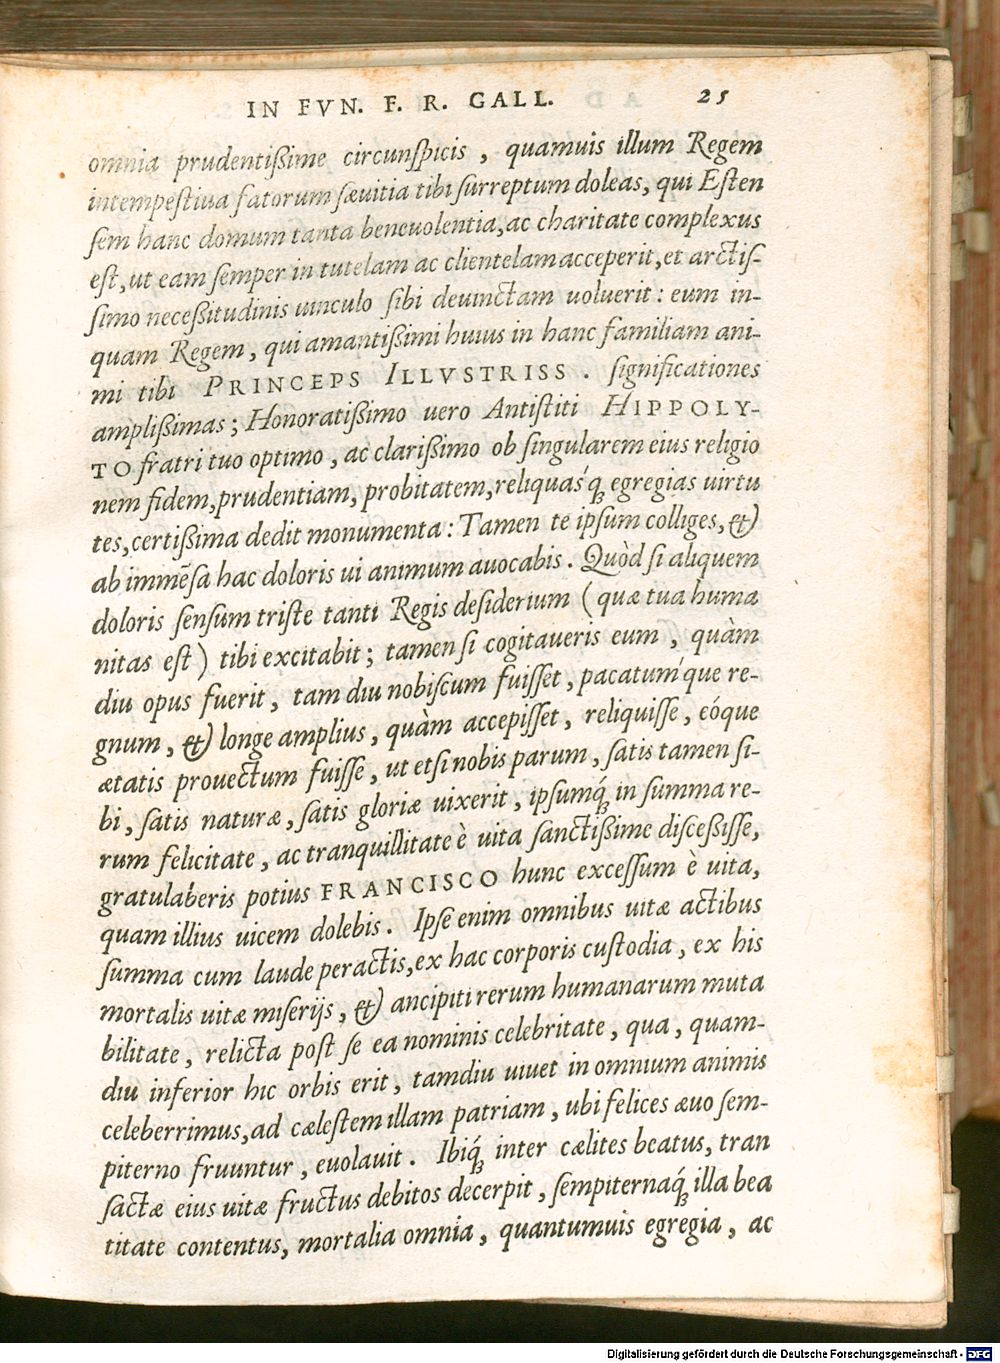 IN FVN. F. R. GALL. 25
omnia prudentißime circunſpicis, quamuis illum Regem
intempeſtiua fatorum ſæuitia tibi ſurreptum doleas, qui Eſten
ſem hanc domum tanta beneuolentia, ac charitate complexus
eſt, ut eam ſemper in tutelam ac clientelam acceperit, et arctiſ-
ſimo neceßitudinis uinculo ſibi deuinctam uoluerit: eum in-
quam Regem, qui amantißimi huius in hanc familiam ani-
mi tibi PRINCEPS ILLVSTRISS. ſignificationes
amplißimas; Honoratißimo uero Antiſtiti HIPPOLY-
TO fratri tuo optimo, ac clarißimo ob ſingularem eius religio
nem fidem, prudentiam, probitatem, reliquasq́; egregias uirtu
tes, certißima dedit monumenta: Tamen te ipſum colliges, &
ab immẽſa hac doloris ui animum auocabis. Quòd ſi aliquem
doloris ſenſum triſte tanti Regis deſiderium (quæ tua huma
nitas eſt) tibi excitabit; tamen ſi cogitaueris eum, quàm
diu opus fuerit, tam diu nobiſcum fuiſſet, pacatumq́ue re-
gnum, & longe amplius, quàm accepiſſet, reliquiſſe, eóque
ætatis prouectum fuiſſe, ut etſi nobis parum, ſatis tamen ſi-
bi, ſatis naturæ, ſatis gloriæ uixerit, ipſumq́; in ſumma re-
rum felicitate, ac tranquillitate è uita ſanctißime diſceßiſſe,
gratulaberis potius FRANCISCO hunc exceſſum è uita,
quam illius uicem dolebis. Ipſe enim omnibus uitæ actibus
ſumma cum laude peractis, ex hac corporis cuſtodia, ex his
mortalis uitæ miſerijs, & ancipiti rerum humanarum muta
bilitate, relicta poſt ſe ea nominis celebritate, qua, quam-
diu inferior hic orbis erit, tamdiu uiuet in omnium animis
celeberrimus, ad cæleſtem illam patriam, ubi felices æuo ſem-
piterno fruuntur, euolauit. Ibiq́; inter cælites beatus, tran
ſactæ eius uitæ fructus debitos decerpit, ſempiternaq́; illa bea
titate contentus, mortalia omnia, quantumuis egregia, ac
Digitalisierung gefördert durch die Deutsche Forschungsgemeinschaft - DFG